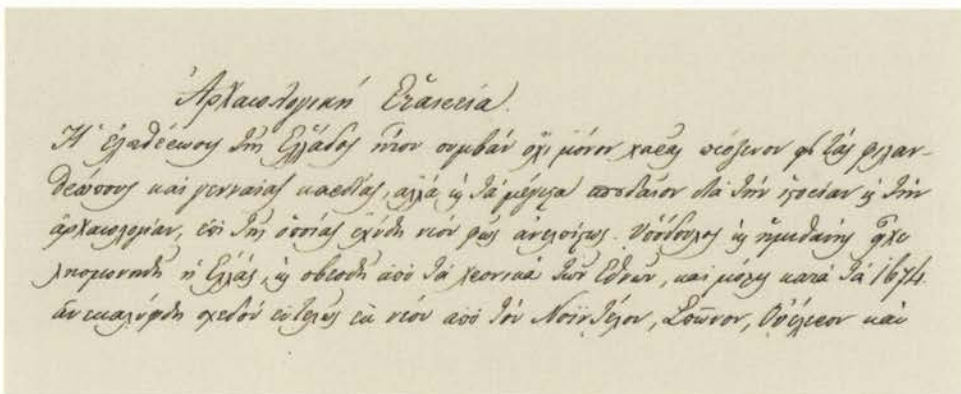 Ἀρχαιολογικὴ Ἑταιρεία.
Ἡ ἐλευθέρωσις τῆς Ἑλλάδος ἦτον συμβὰν ὄχι μόνον χαρᾶς πρόξενον εἰς τὰς φιλαν-
θρώπους καὶ γενναίας καρδίας, ἀλλὰ καὶ τὰ μέγιστα σπουδαῖον διὰ τὴν ἱστορίαν καὶ τὴν
ἀρχαιολογίαν, ἐπὶ τῆς ὁποίας ἐχύθη νέον φῶς ἀνελπίστως. Ὑπόδουλος καὶ ἡμιθανὴς εἶχε
λησμονηθῆ ἡ Ἑλλάς, καὶ σβεσθῆ ἀπὸ τὰ χρονικὰ τῶν Ἐθνῶν, καὶ μόλις κατὰ τὰ 1674.
ἀνεκαλύφθη σχεδὸν ἐντελῶς ἐκ νέου ἀπὸ τὸν Νοϊντέλον, Σπῶνον, Οὐέλερον καὶ